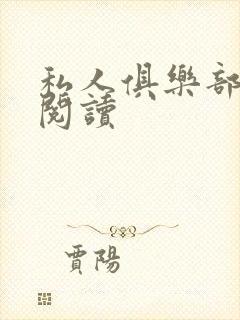 私人俱樂部
閱讀
賈陽